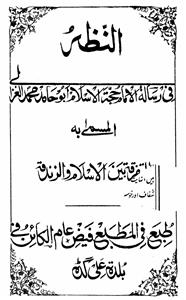 النظر
فی رسالة الامام حجة الاسلام ابو حامد محمد الغزالی
المسمی به
التفرقة بین الاسلام والزندقة
طبع فی المطبع فیض عام الکائن فی
بلدة علی گڈہ